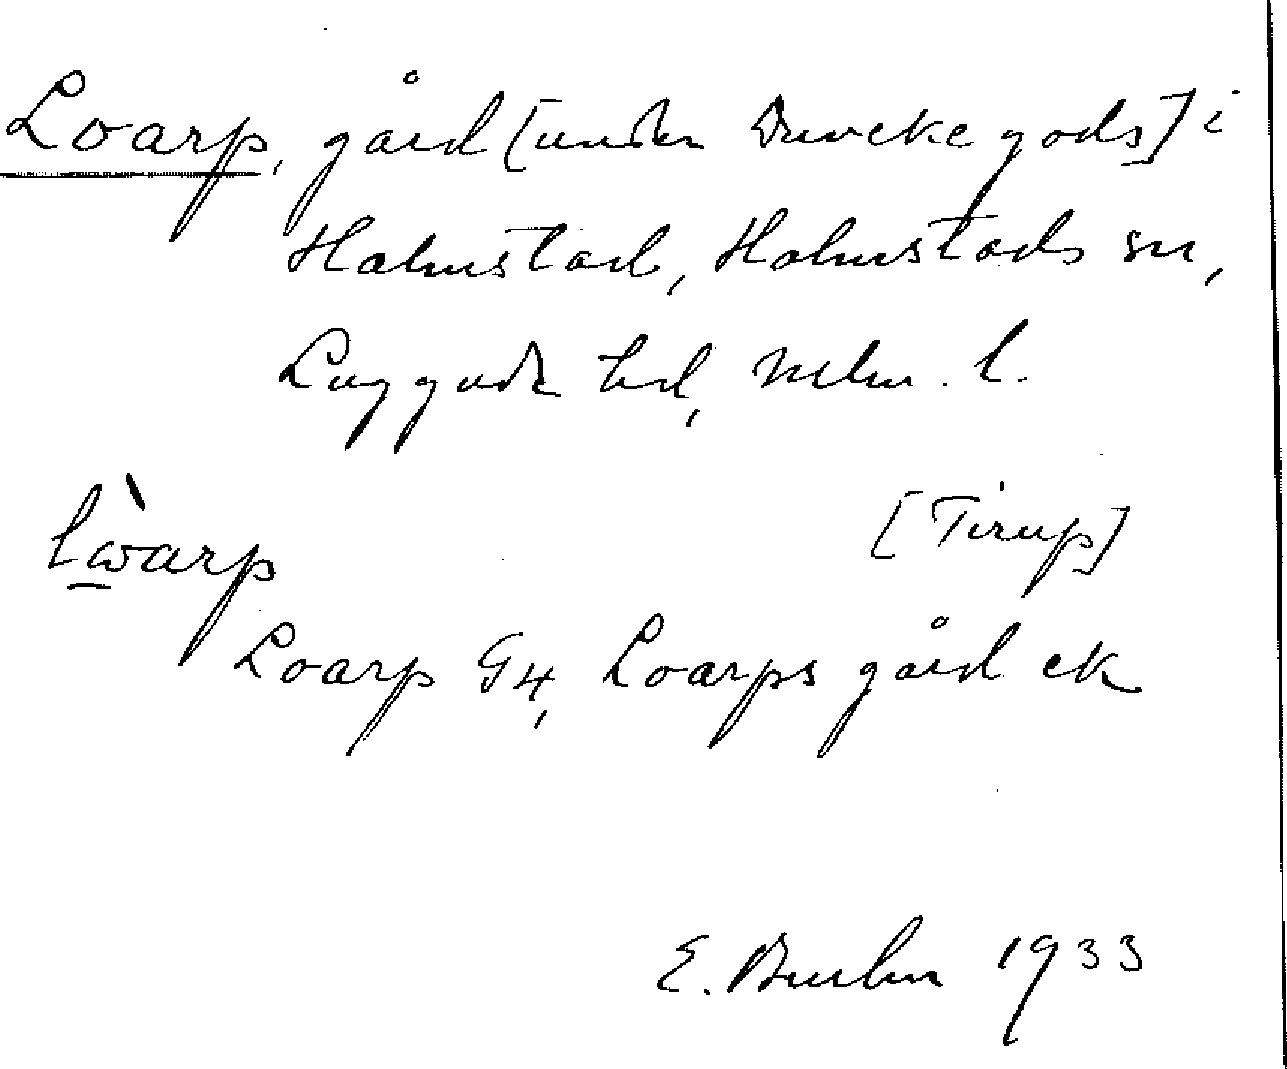 Loarp, gård [under Duveke gods] i
Halmstad, Halmstads sn,
Luggude hd, Mlm. l.
[Tirup]
Loarp G4, Loarps gård ek
E. 1933